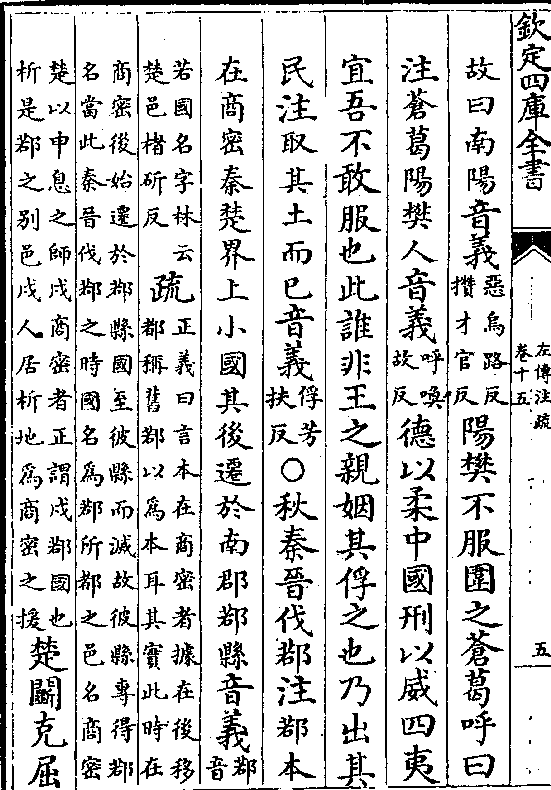 欽定四庫全書
左傳注疏
卷十五
五
故曰南陽音義惡烏路反
攢才官反陽樊不服圍之蒼葛呼曰
注蒼葛陽樊人音義呼喚
故反德以柔中國刑以威四夷
宜吾不敢服也此誰非王之親姻其俘之也乃出其
民注取其土而已音義俘芳
扶反○秋秦晉伐鄀注鄀本
在商密秦楚界上小國其後遷於南郡鄀縣音義鄀
音
若國名字林云
楚邑楮斫反疏正義曰言本在商密者據在後移
鄀稱舊鄀以為本耳其實此時在
商密後始遷於鄀縣國至彼縣而滅故彼縣專得鄀
名當此秦晉伐鄀之時國名為鄀所都之邑名商密
楚以申息之師戍商密者正謂戍鄀國也
析是鄀之别邑戍人居析地為商密之援楚鬭克屈